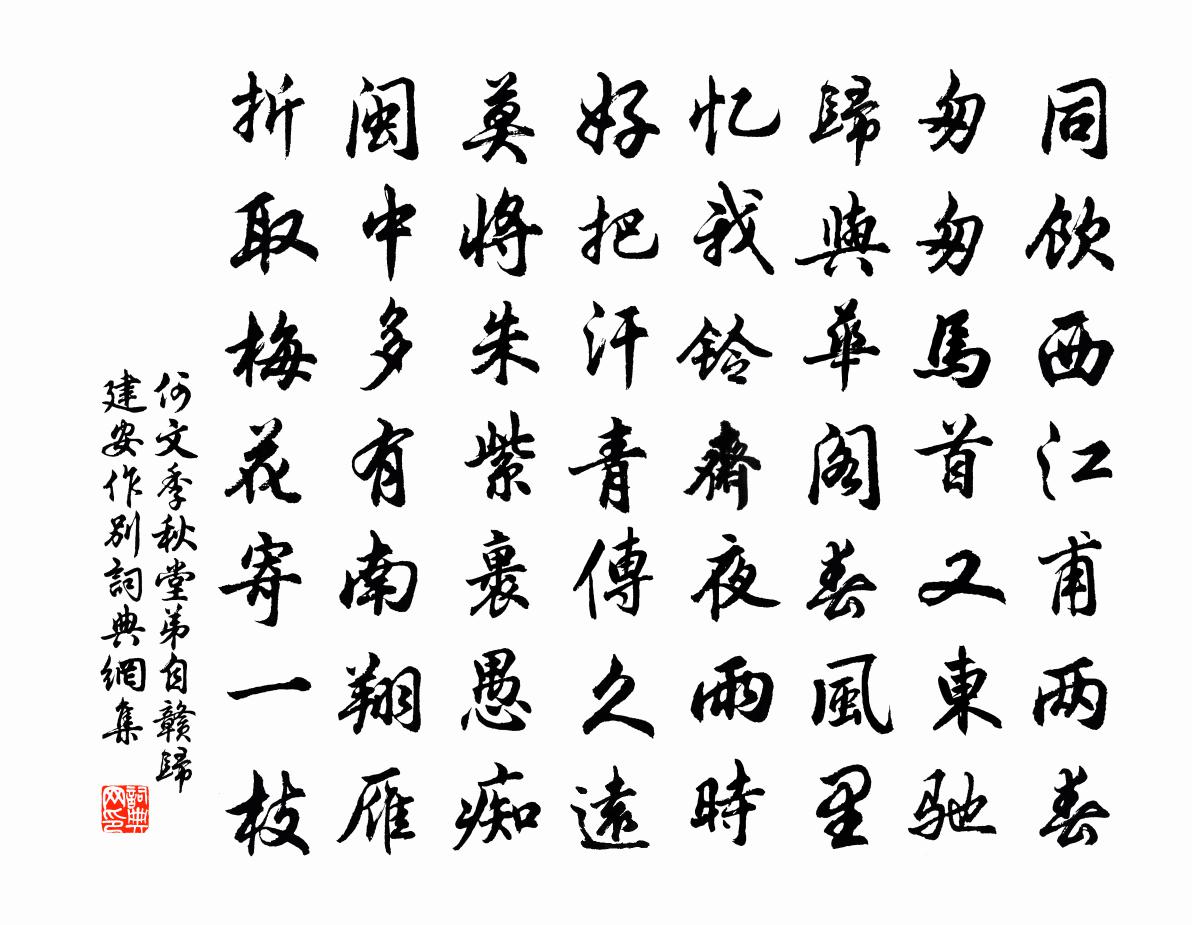 同饮西江甫两春
匆匆馬首又東驰
歸與華阁春風里
忆我铃齋夜雨時
好把汗青傳久遠
莫將朱紫裹愚痴
闽中多有南翔雁
折取梅花寄一枝
何文季秋堂弟自赣歸
建安作别詞典網集
詞典
网印